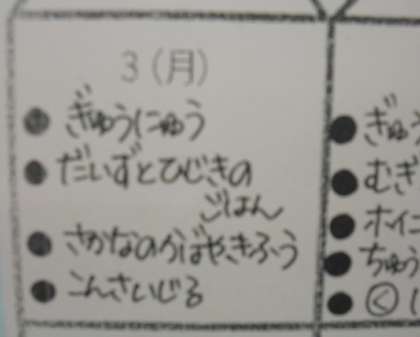 3(月)
●ぎゅうにゅう
●だいずとひじきの
ごはん
●さかなのかばやきふう
●こんさいじる
●ぎゅう
●むぎ
●ホイコ
●ちゅう